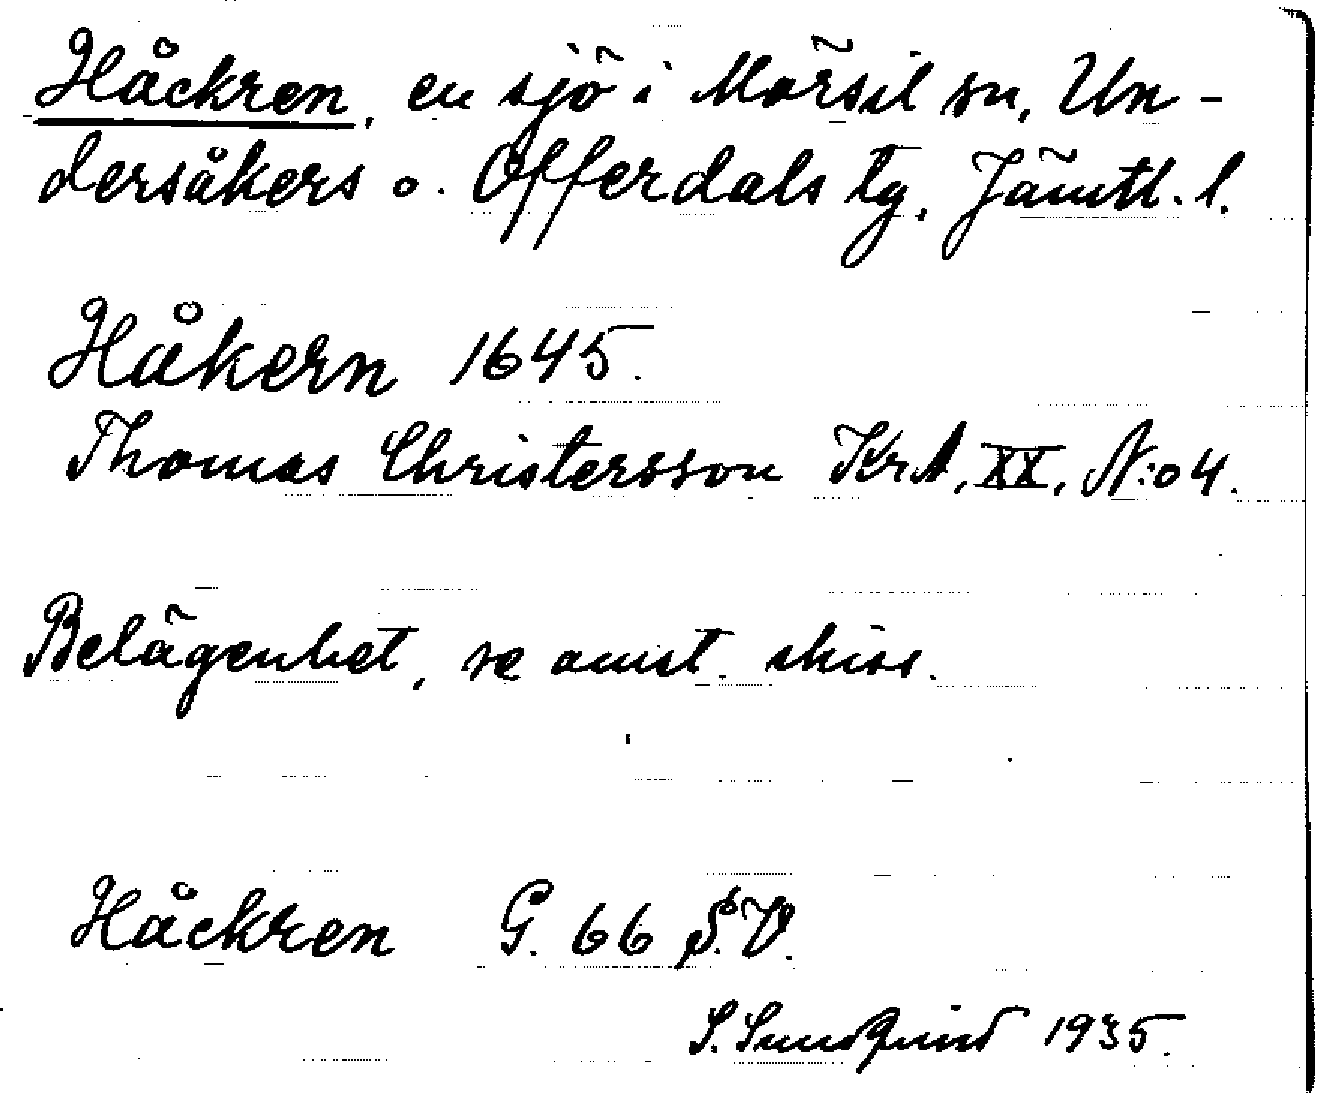 Håckren, en sjö i Mörsil sn, Un-
dersåkers o. Offerdals tg, Jämtl. l.
Håkern 1645.
Thomas Christersson KrA, XX, N:o 4.
Belägenhet, se amst. skiss.
Håckren G. 66 S.V.
S. Sundqvist 1935.